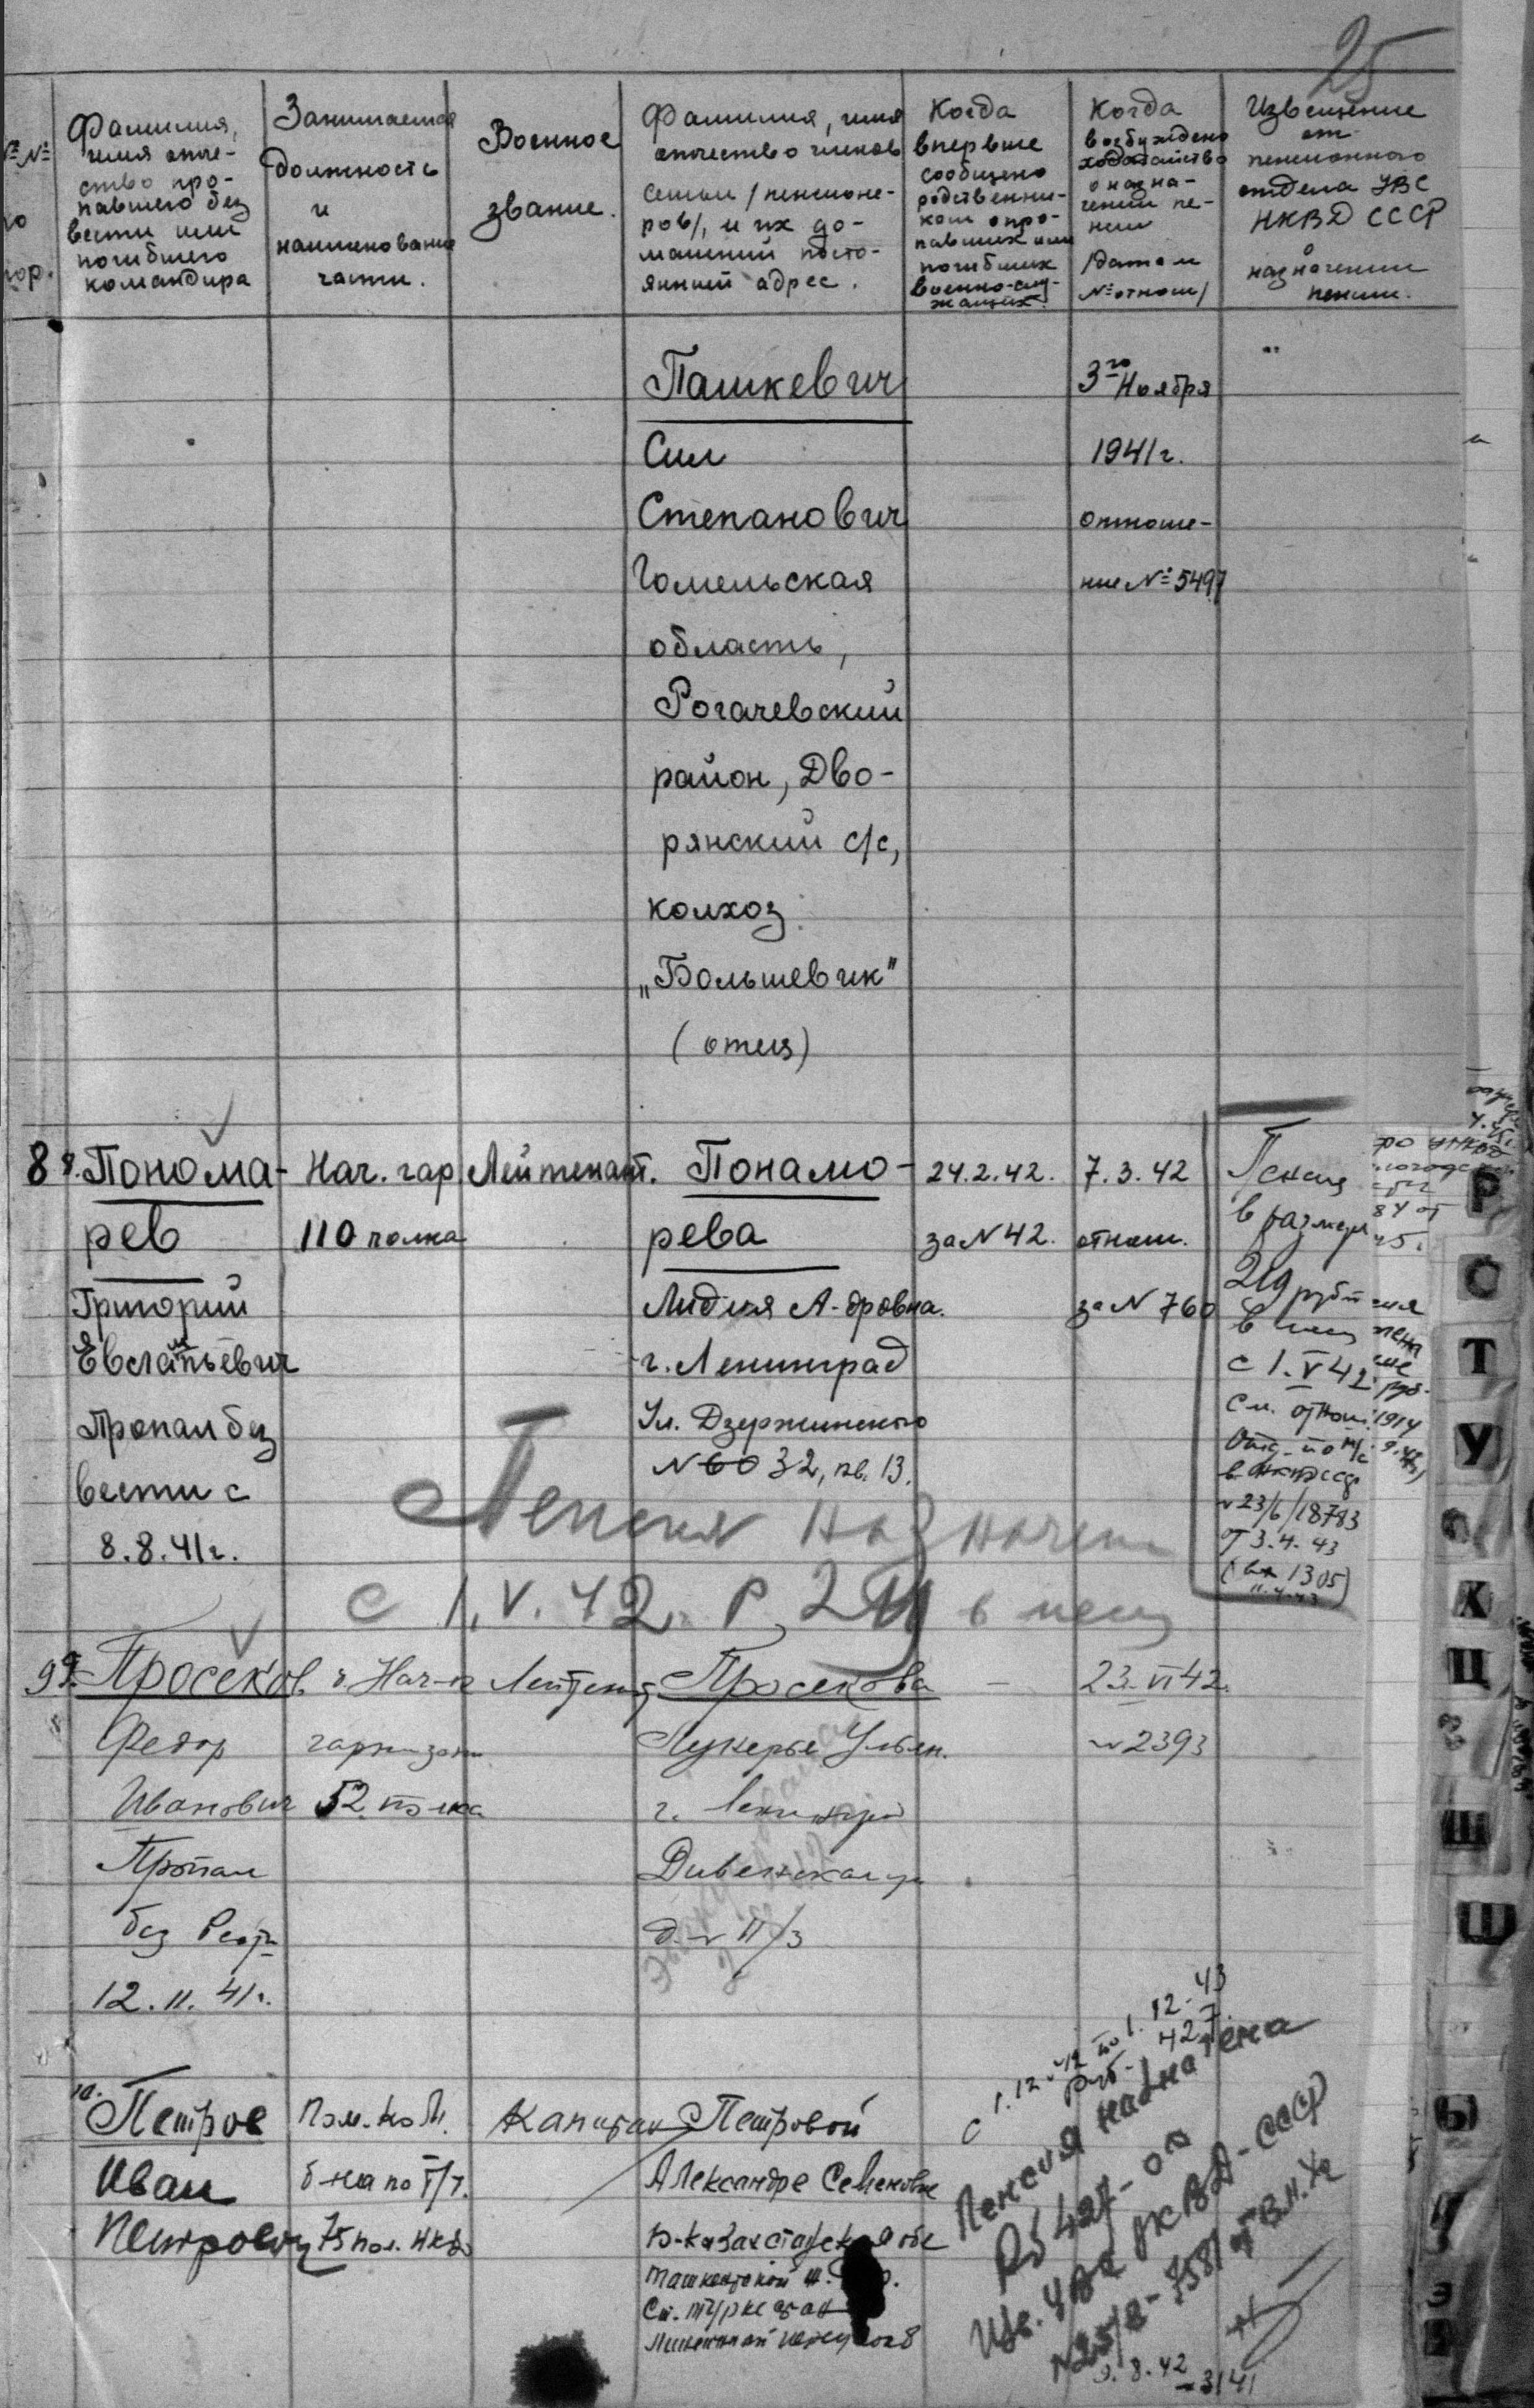 25
№ №
Фамилия,
имя отче-
ство про-
павшего без
вести или
погибшего
командира
Занимаемая
должность
и
наименование
части.
Военное
звание.
Фамилия, имя
отчество членов
семьи /пенсионе-
ров/, и их до-
машний посто-
янный адрес.
Когда
впервые
сообщено
родственни-
кам о про-
павших или
погибших
военно-слу-
жащих.
Когда
возбуждено
ходатайство
о назна-
чении пе-
нсии
/дата и
№ отнош/
Извещение
от
пенсионного
отдела УВС
НКВД СССР
о
назначении
пенсии.
Пашкевич
Сил
Степанович
Гомельская
область,
Рогачевский
район, Дво-
рянский с/с,
колхоз
„Большевик"
(отец)
3го Ноября
1941 г.
отноше-
ние № 5497
8 Понома-
рев
Григорий
Пропал без
вести с
8.8.41 г.
Нач. гар
110 полка
Лейтенант.
Понамо-
рева
Лидия А-дровна.
г. Ленинград
Ул. Дзержинского
N 60 32, кв. 13.
24.2.42.
за N 42.
7.3.42
отнош.
за N 760
Пенсия
в размере
211 рубл
в мес
с 1.V 42
См. отнош.
N 23/6/18783
от 3.4.43
(вх 1305)
11.4.43
Пенсия назначен
с 1.V.42 г. Р. 211 в мес
9 Просеков
Федор
Иванович
Пропал
без вести
12.11.41 г.
Нач-к
гарнизона
52 полка
Лейтенант
Просекова
Лукерья Ульян.
г. Ленинград
Дивенская ул
д. N 11/3
23.VI 42.
N 2393
10.
Петров
Иван
Петрович
Пом. ко
б-на по Т/ч.
75 пол. НКВД
Капитан
Петровой
Александре Семеновне
Ю-Казахстанская обл
Ташкентской ж.
Ст. Туркестан
с 1.12.42 по 1.12.43
руб. 427
Пенсия назначена
Рб 427-00
Изв. УВС НКВД-СССР
N 25/8-7581
9.8.42
3141
Р
С
Т
У
Х
Ц
Ш
Щ
Ы